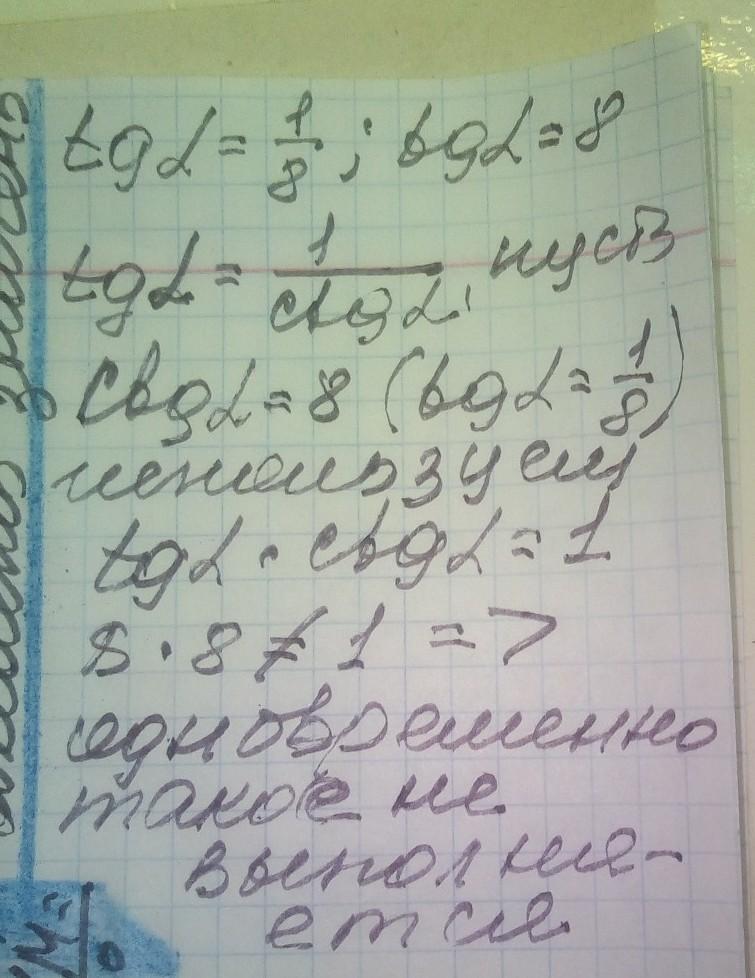 tgα = 1/8 ; tgα = 8
tgα = 1/ctgα, пусть
ctgα = 8 (tgα = 1/8)
используем
tgα · ctgα = 1
8 · 8 ≠ 1 =>
одновременно
такое не
выполня-
ется